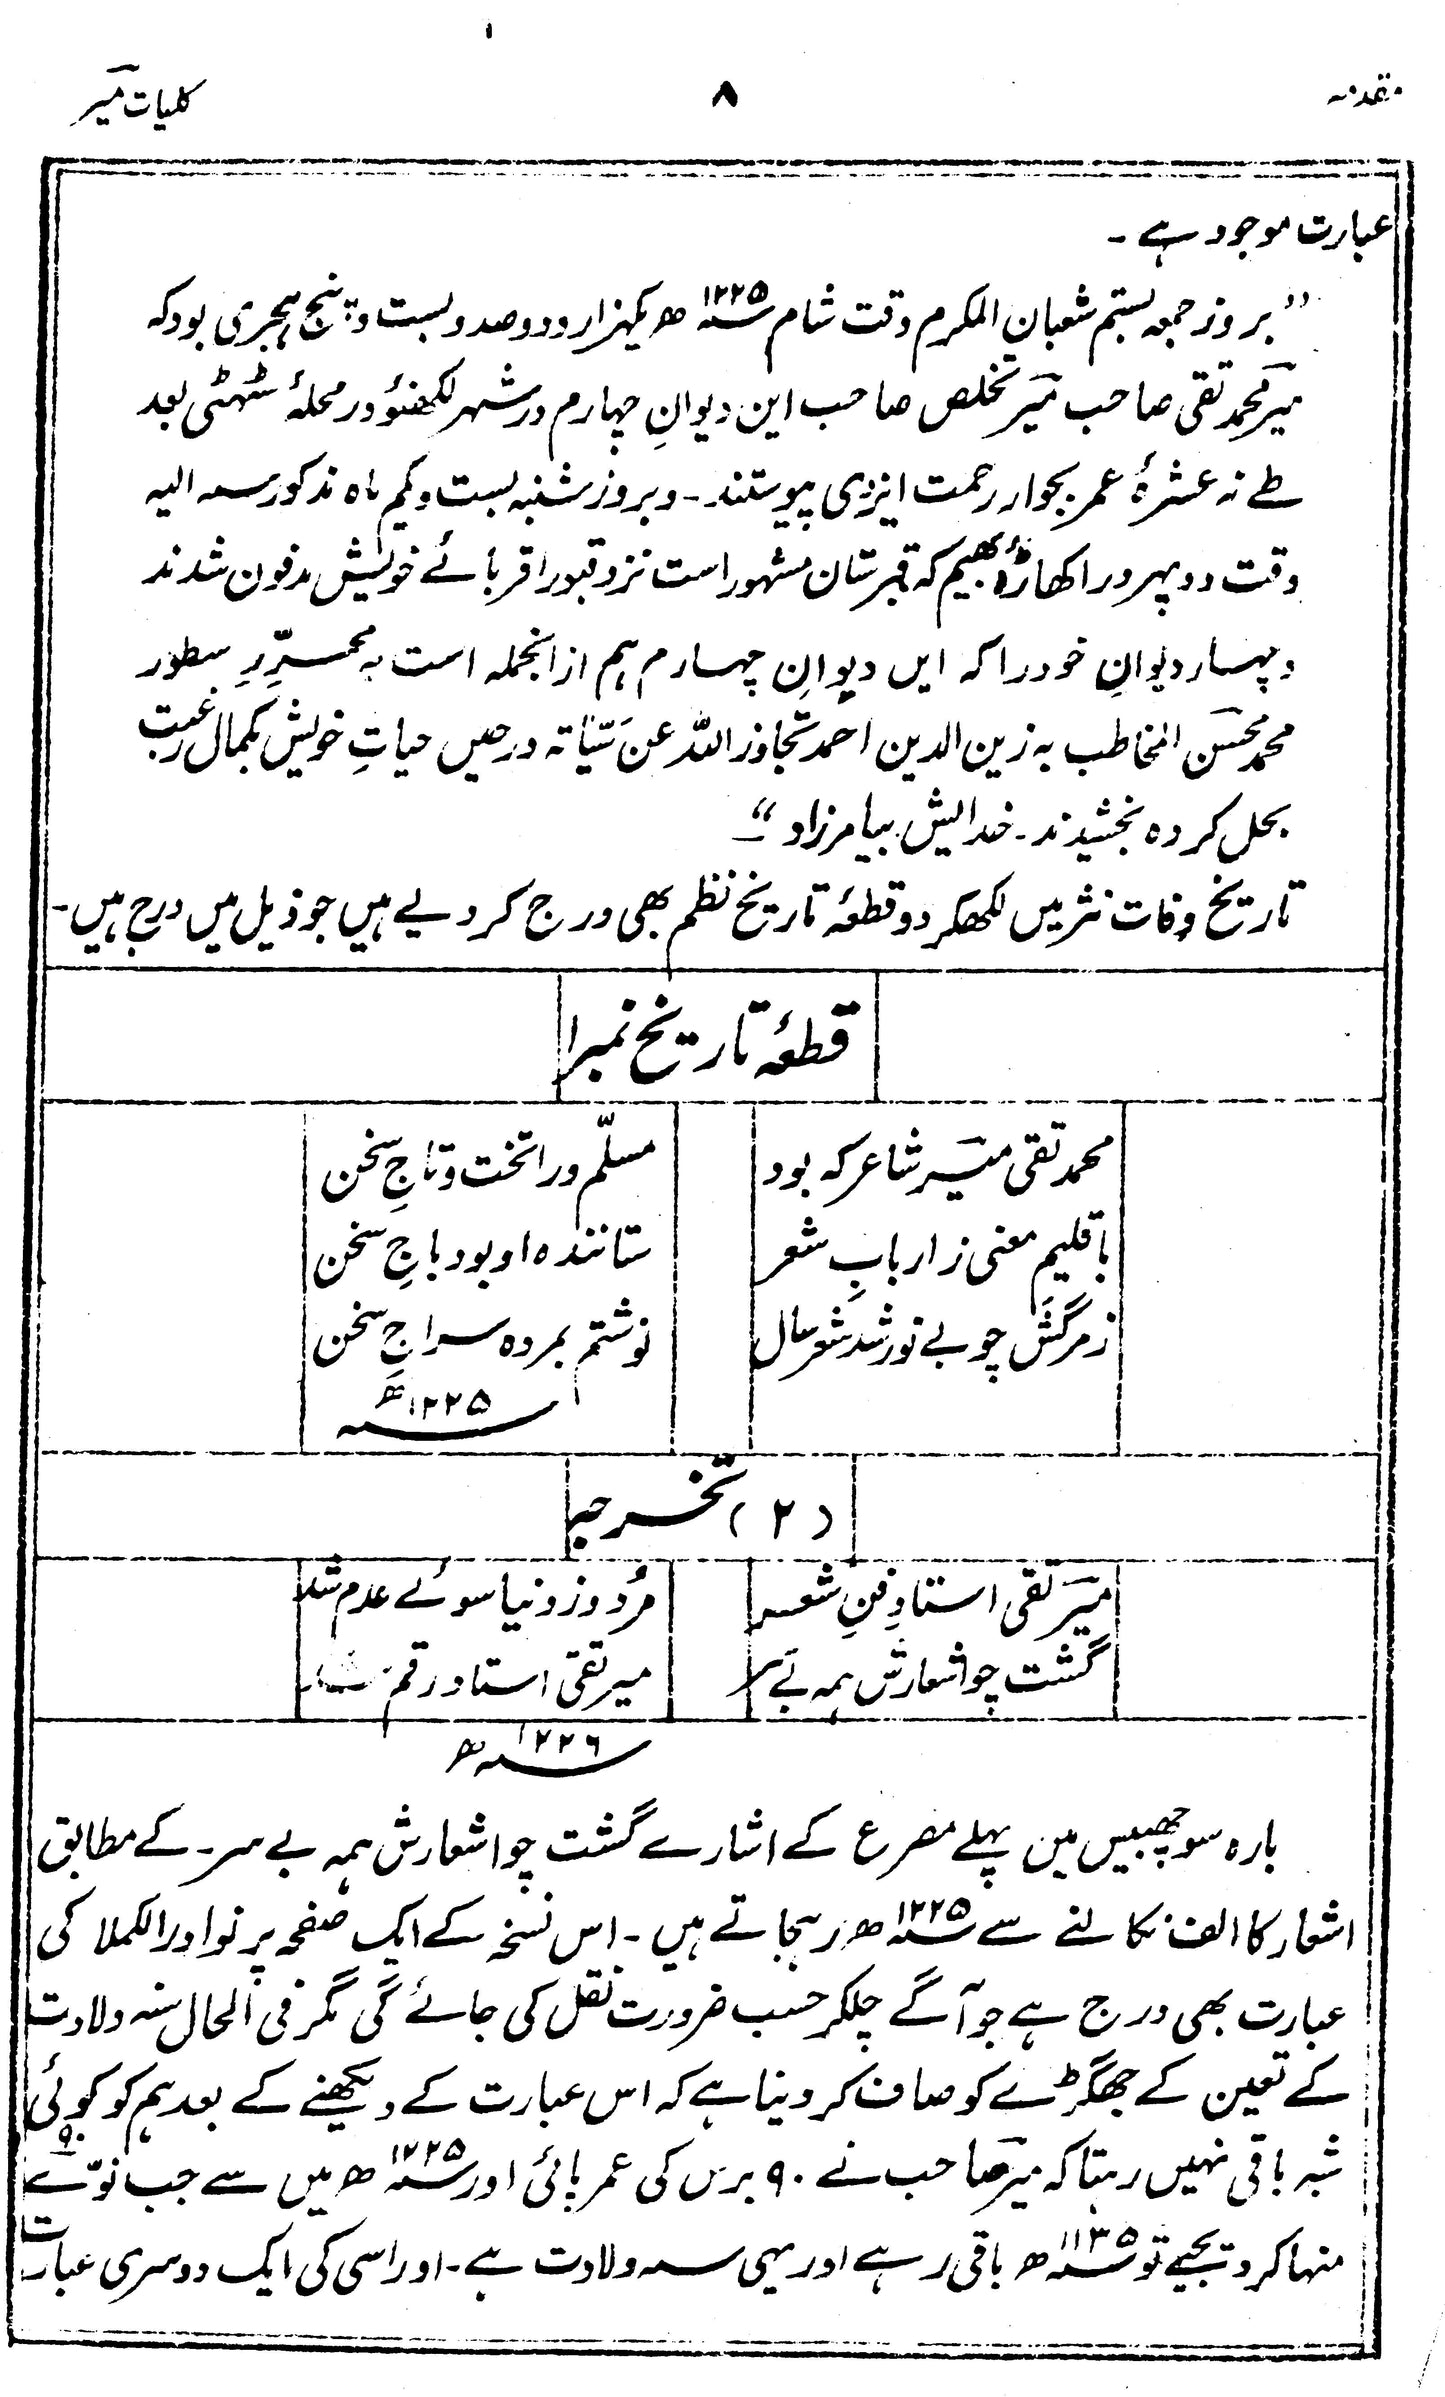 مقدمہ ۸ کلیات میر
عبارت موجود ہے ۔
”بروز جمعہ بستم شعبان المکرم وقت شام ۱۲۲۵ھ یکہزار و دو صد و بست و پنج ہجری بود کہ
میر محمد تقی صاحب میر تخلص صاحب این دیوانِ چہارم در شہر لکھنؤ در محلۂ سٹہٹی بعد
طے نہ عشرۂ عمر بجوار رحمت ایزدی پیوستند ۔ و بروز شنبہ بست و یکم ماہ مذکور سنہ الیہ
وقت دوپہر در اکھاڑۂ بھیم کہ قبرستان مشہور است نزد قبور اقربائے خویش مدفون شدند
و چہار دیوانِ خود را کہ ایں دیوانِ چہارم ہم از انجملہ است بہ محرّرِ سطور
محمد محسن المخاطب بہ زین الدین احمد تجاوز اللہ عن سیّاتہ در حیں حیاتِ خویش بکمال رغبت
بحل کردہ بخشیدند ۔ خدایش بیامرزاد “
تاریخ وفات نثر میں لکھکر دو قطعۂ تاریخ نظم بھی درج کر دیے ہیں جو ذیل میں درج ہیں ۔
قطعۂ تاریخ نمبر ۱
محمد تقی میر شاعر کہ بود مسلّم ورا تخت و تاجِ سخن
باقلیم معنی ز اربابِ شعر ستانندہ او بود باجِ سخن
ز مرگش چو بے نور شد شعر سال نوشتم بمردہ سراجِ سخن
۱۲۲۵ھ
(۲) تخرجہ
میر تقی استادِ فنِ شعر مُرد و ز دنیا سوئے عدم شد
گشت چو اشعارش ہمہ بے سر میر تقی استاد رقم
۱۲۲۶ھ
بارہ سو چھبیس مین پہلے مصرع کے اشارے گشت چو اشعارش ہمہ بے سر ۔ کے مطابق
اشعار کا الف نکالنے سے ۱۲۲۵ھ رہجاتے ہیں ۔ اس نسخہ کے ایک صفحہ پر نوادر الکملا کی
عبارت بھی درج ہے جو آگے چلکر حسب ضرورت نقل کی جائے گی مگر فی الحال سنہ ولادت
کے تعین کے جھگڑے کو صاف کر دینا ہے کہ اس عبارت کے دیکھنے کے بعد ہم کو کوئی
شبہ باقی نہیں رہتا کہ میر صاحب نے ۹۰ برس کی عمر پائی اور ۱۲۲۵ھ میں سے جب نوّے ۹۰
منہا کر دیجیے تو ۱۱۳۵ھ باقی رہے اور یہی سنہ ولادت ہے ۔ اور اسی کی ایک دوسری عبارت